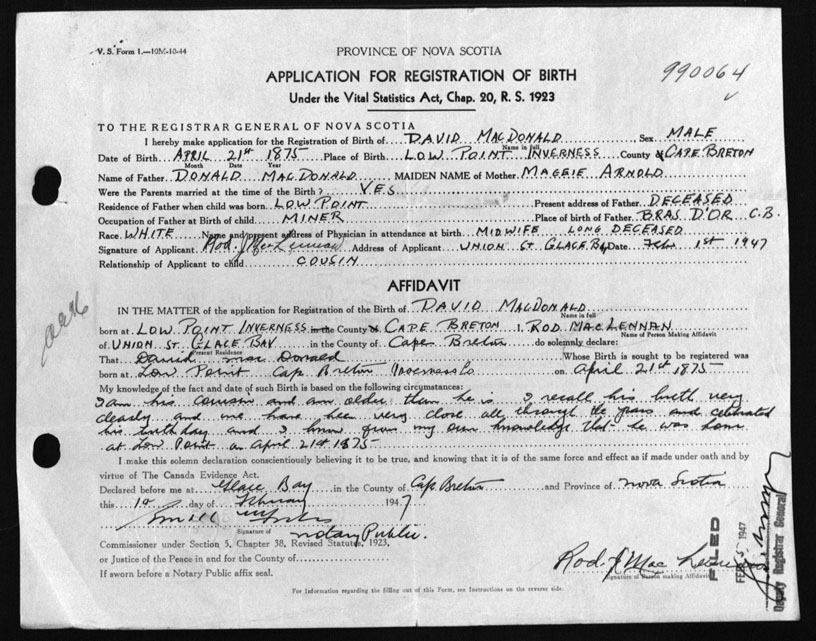 V. S. Form 1.—10M-10-44
PROVINCE OF NOVA SCOTIA
990064
APPLICATION FOR REGISTRATION OF BIRTH
Under the Vital Statistics Act, Chap. 20, R. S. 1923
TO THE REGISTRAR GENERAL OF NOVA SCOTIA
I hereby make application for the Registration of Birth of DAVID MACDONALD Sex MALE
Name in full
Date of Birth APRIL 21st 1875 Place of Birth LOW POINT INVERNESS County of CAPE BRETON
Month Date Year
Name of Father DONALD MACDONALD MAIDEN NAME of Mother MAGGIE ARNOLD
Were the Parents married at the time of the Birth? YES
Residence of Father when child was born LOW POINT Present address of Father DECEASED
Occupation of Father at Birth of child MINER Place of birth of Father BRAS D'OR C.B.
Race WHITE Name and present address of Physician in attendance at birth MIDWIFE LONG DECEASED
Signature of Applicant Rod. J MacLennan Address of Applicant UNION ST GLACE BAY Date Feb. 1st 1947
Relationship of Applicant to child COUSIN
AFFIDAVIT
IN THE MATTER of the application for Registration of the Birth of DAVID MACDONALD
Name in full
born at LOW POINT INVERNESS in the County of CAPE BRETON I, ROD MACLENNAN
Name of Person Making Affidavit
of UNION ST. GLACE BAY in the County of Cape Breton do solemnly declare:
Present Residence
That David Mac Donald Whose Birth is sought to be registered was
born at Low Point Cape Breton Inverness Co on April 21st 1875
My knowledge of the fact and date of such Birth is based on the following circumstances:
I am his cousin and am older than he is I recall his birth very
clearly and we have been very close all through the years and celebrated
his birthday and I know from my own knowledge that he was born
at Low Point on April 21st 1875
I make this solemn declaration conscientiously believing it to be true, and knowing that it is of the same force and effect as if made under oath and by
virtue of The Canada Evidence Act.
Declared before me at Glace Bay in the County of Cape Breton and Province of Nova Scotia
this 1st day of February 1947
Signature of Notary Public.
Commissioner under Section 5, Chapter 38, Revised Statutes, 1923,
or Justice of the Peace in and for the County of
If sworn before a Notary Public affix seal.
Rod J MacLennan
Signature of Person making Affidavit
For Information regarding the filling out of this Form, see Instructions on the reverse side.
FILED
FEB 5 1947
Deputy Registrar General